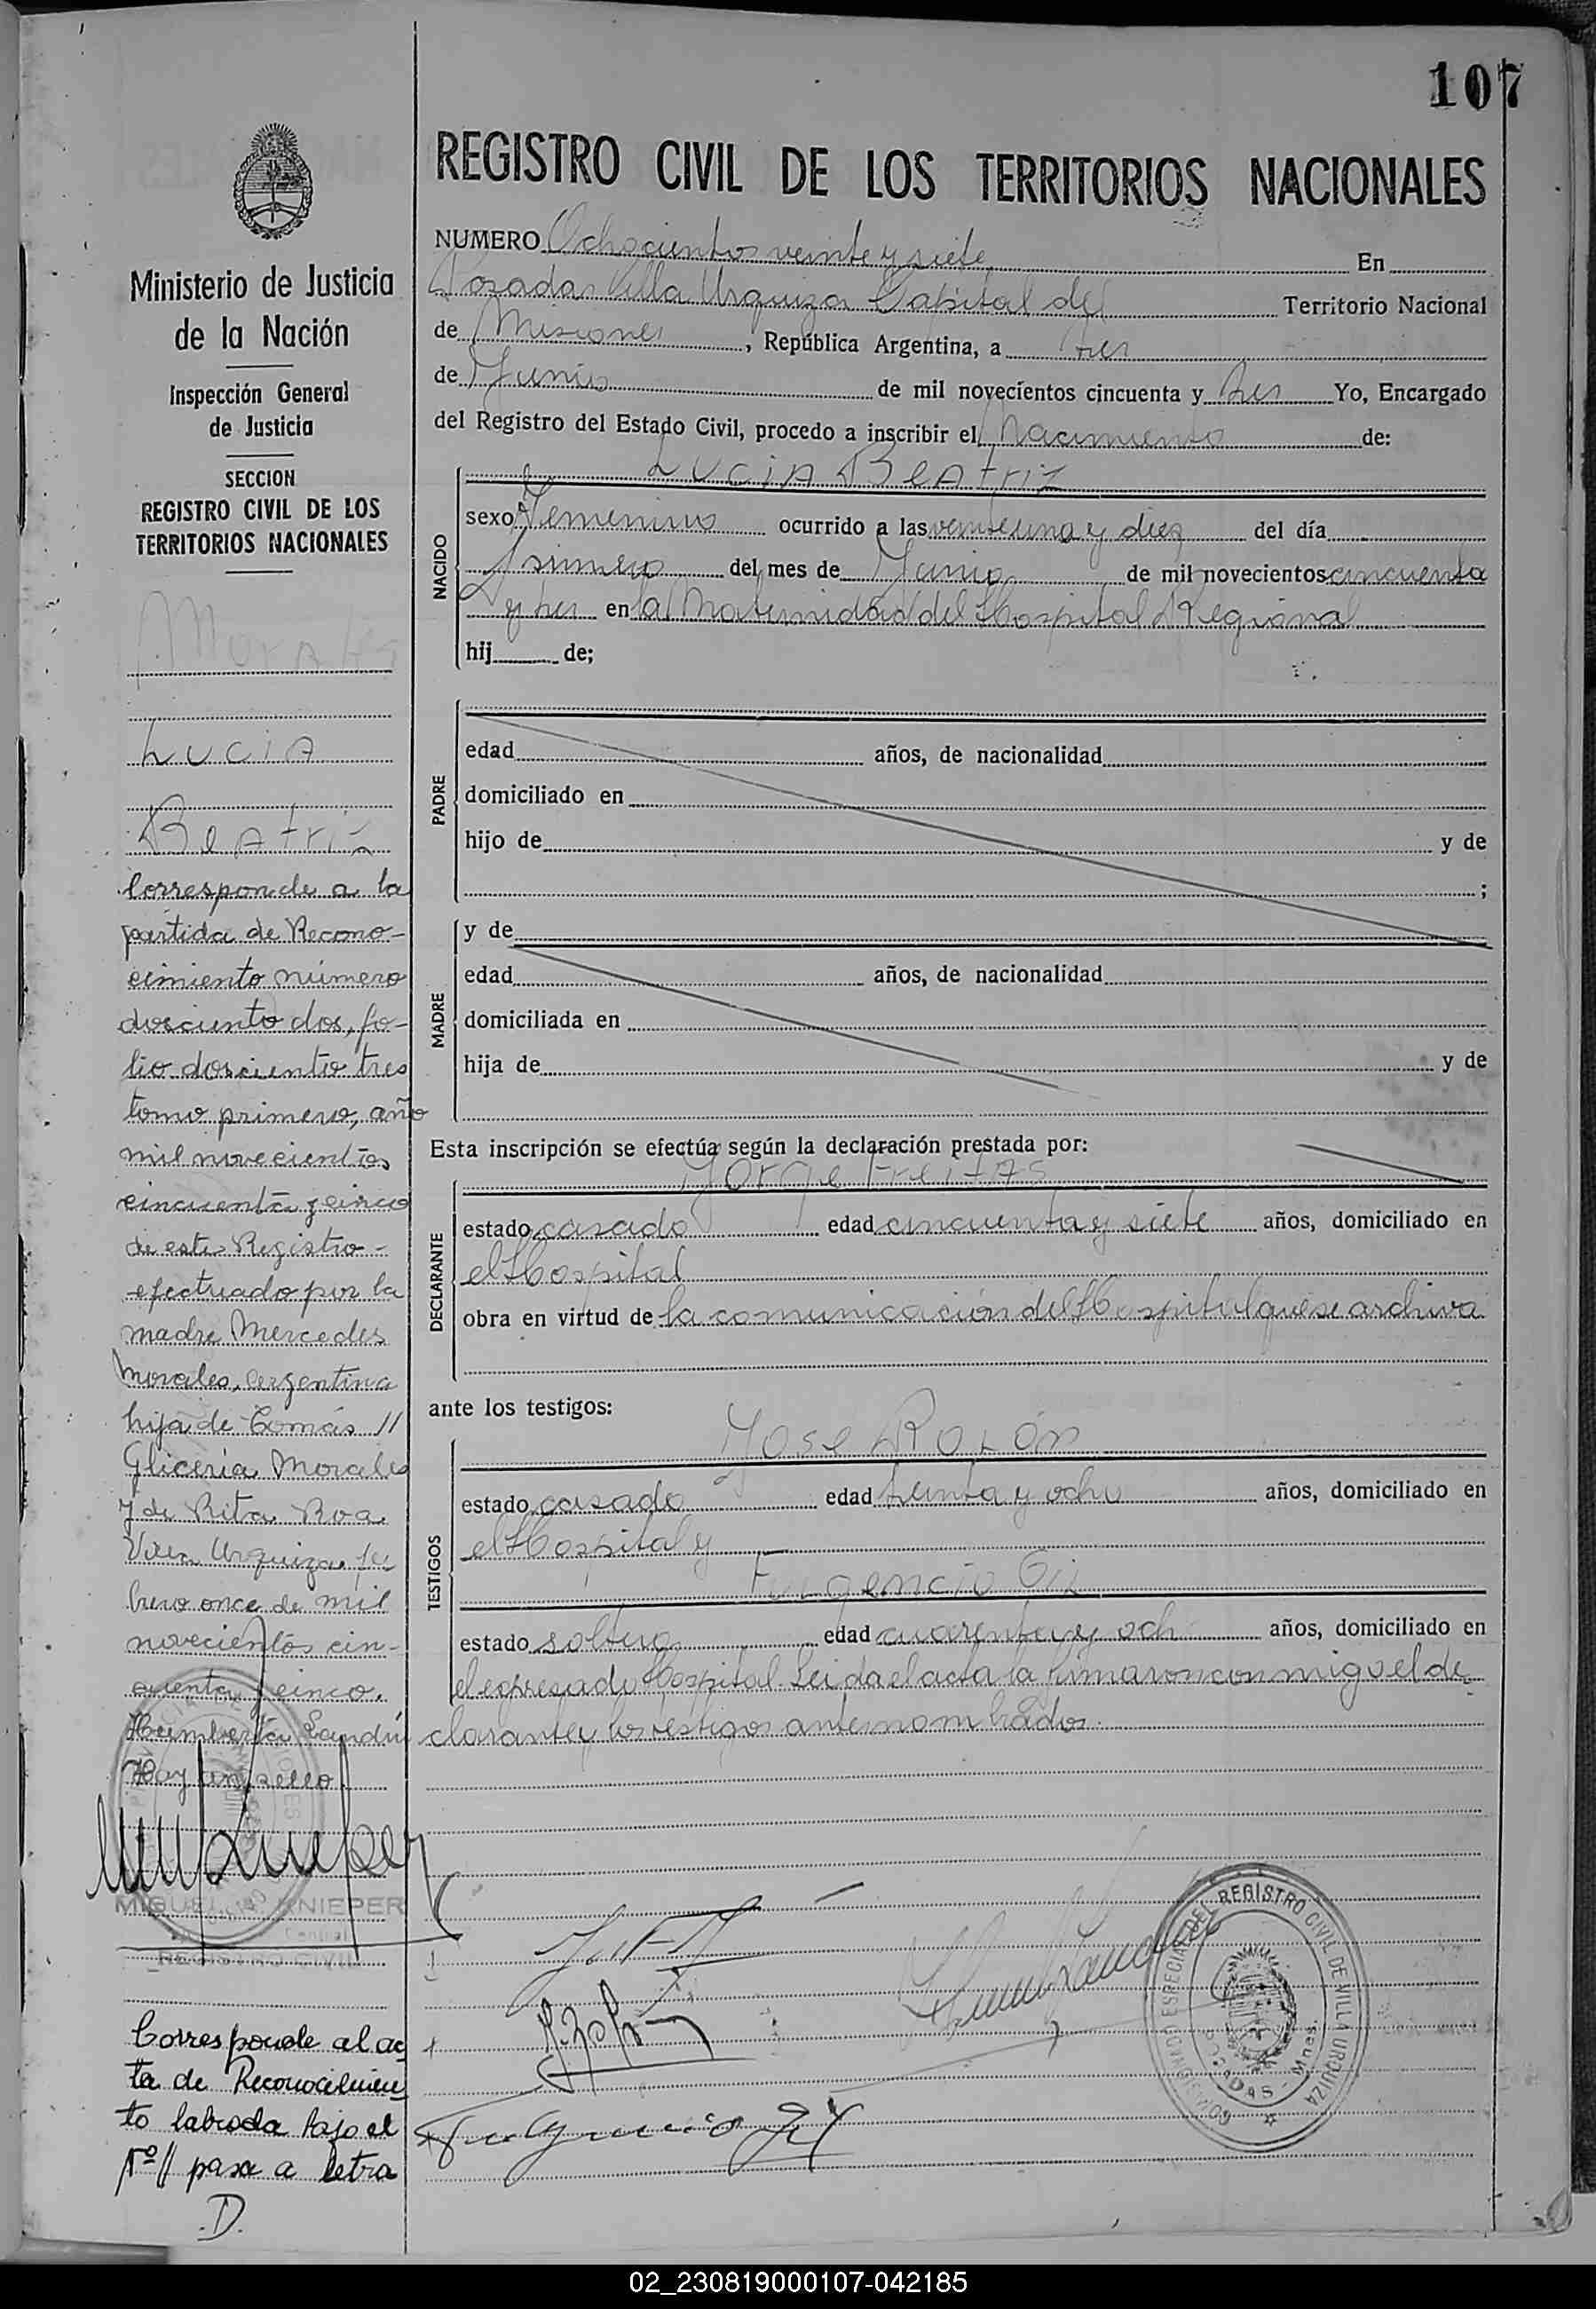 107
REGISTRO CIVIL DE LOS TERRITORIOS NACIONALES
Ministerio de Justicia
de la Nación
Inspección General
de Justicia
SECCION
REGISTRO CIVIL DE LOS
TERRITORIOS NACIONALES
Morales
Lucia
Beatriz
Corresponde a la
partida de Recono-
cimiento número
doscientos dos, fo-
lio doscientos tres
tomo primero, año
mil novecientos
cincuenta y cinco
de este Registro -
efectuado por la
madre Mercedes
Morales, argentina
hija de Tomás //
Gliceria Morales
y de Rita Roa.
Villa Urquiza, fe
brero once de mil
novecientos cin-
cuenta y cinco.
Humberto Landin
Hay un sello
MIGUEL KNIEPER
REGISTRO CIVIL
Corresponde al ac
ta de Reconocimien
to labrada bajo el
Nº // pasa a letra
D.
NUMERO Ochocientos veinte y siete En
Posadas Villa Urquiza Capital del Territorio Nacional
de Misiones, República Argentina, a tres
de Junio de mil novecientos cincuenta y tres Yo, Encargado
del Registro del Estado Civil, procedo a inscribir el Nacimiento de:
NACIDO
Lucia Beatriz
sexo Femenino ocurrido a las veinteuna y diez del día
primero del mes de Junio de mil novecientos cincuenta
y tres en la Maternidad del Hospital Regional
hij de;
PADRE
edad años, de nacionalidad
domiciliado en
hijo de y de
;
MADRE
y de
edad años, de nacionalidad
domiciliada en
hija de y de
Esta inscripción se efectúa según la declaración prestada por:
DECLARANTE
Jorge Freitas
estado casado edad cincuenta y siete años, domiciliado en
el Hospital
obra en virtud de la comunicación del Hospital que se archiva
ante los testigos:
TESTIGOS
Jose Rolón
estado casado edad treinta y ocho años, domiciliado en
el Hospital y
Fulgencio Gil
estado soltero edad cuarenta y och años, domiciliado en
el expresado Hospital. Leida el acta la firmaron conmigo el de
clarante y los testigos antes nombrados.
Fulgencio Gil
COMISIONADO ESPECIAL DEL REGISTRO CIVIL DE VILLA URQUIZA
POSADAS - Mnes.
02_230819000107-042185